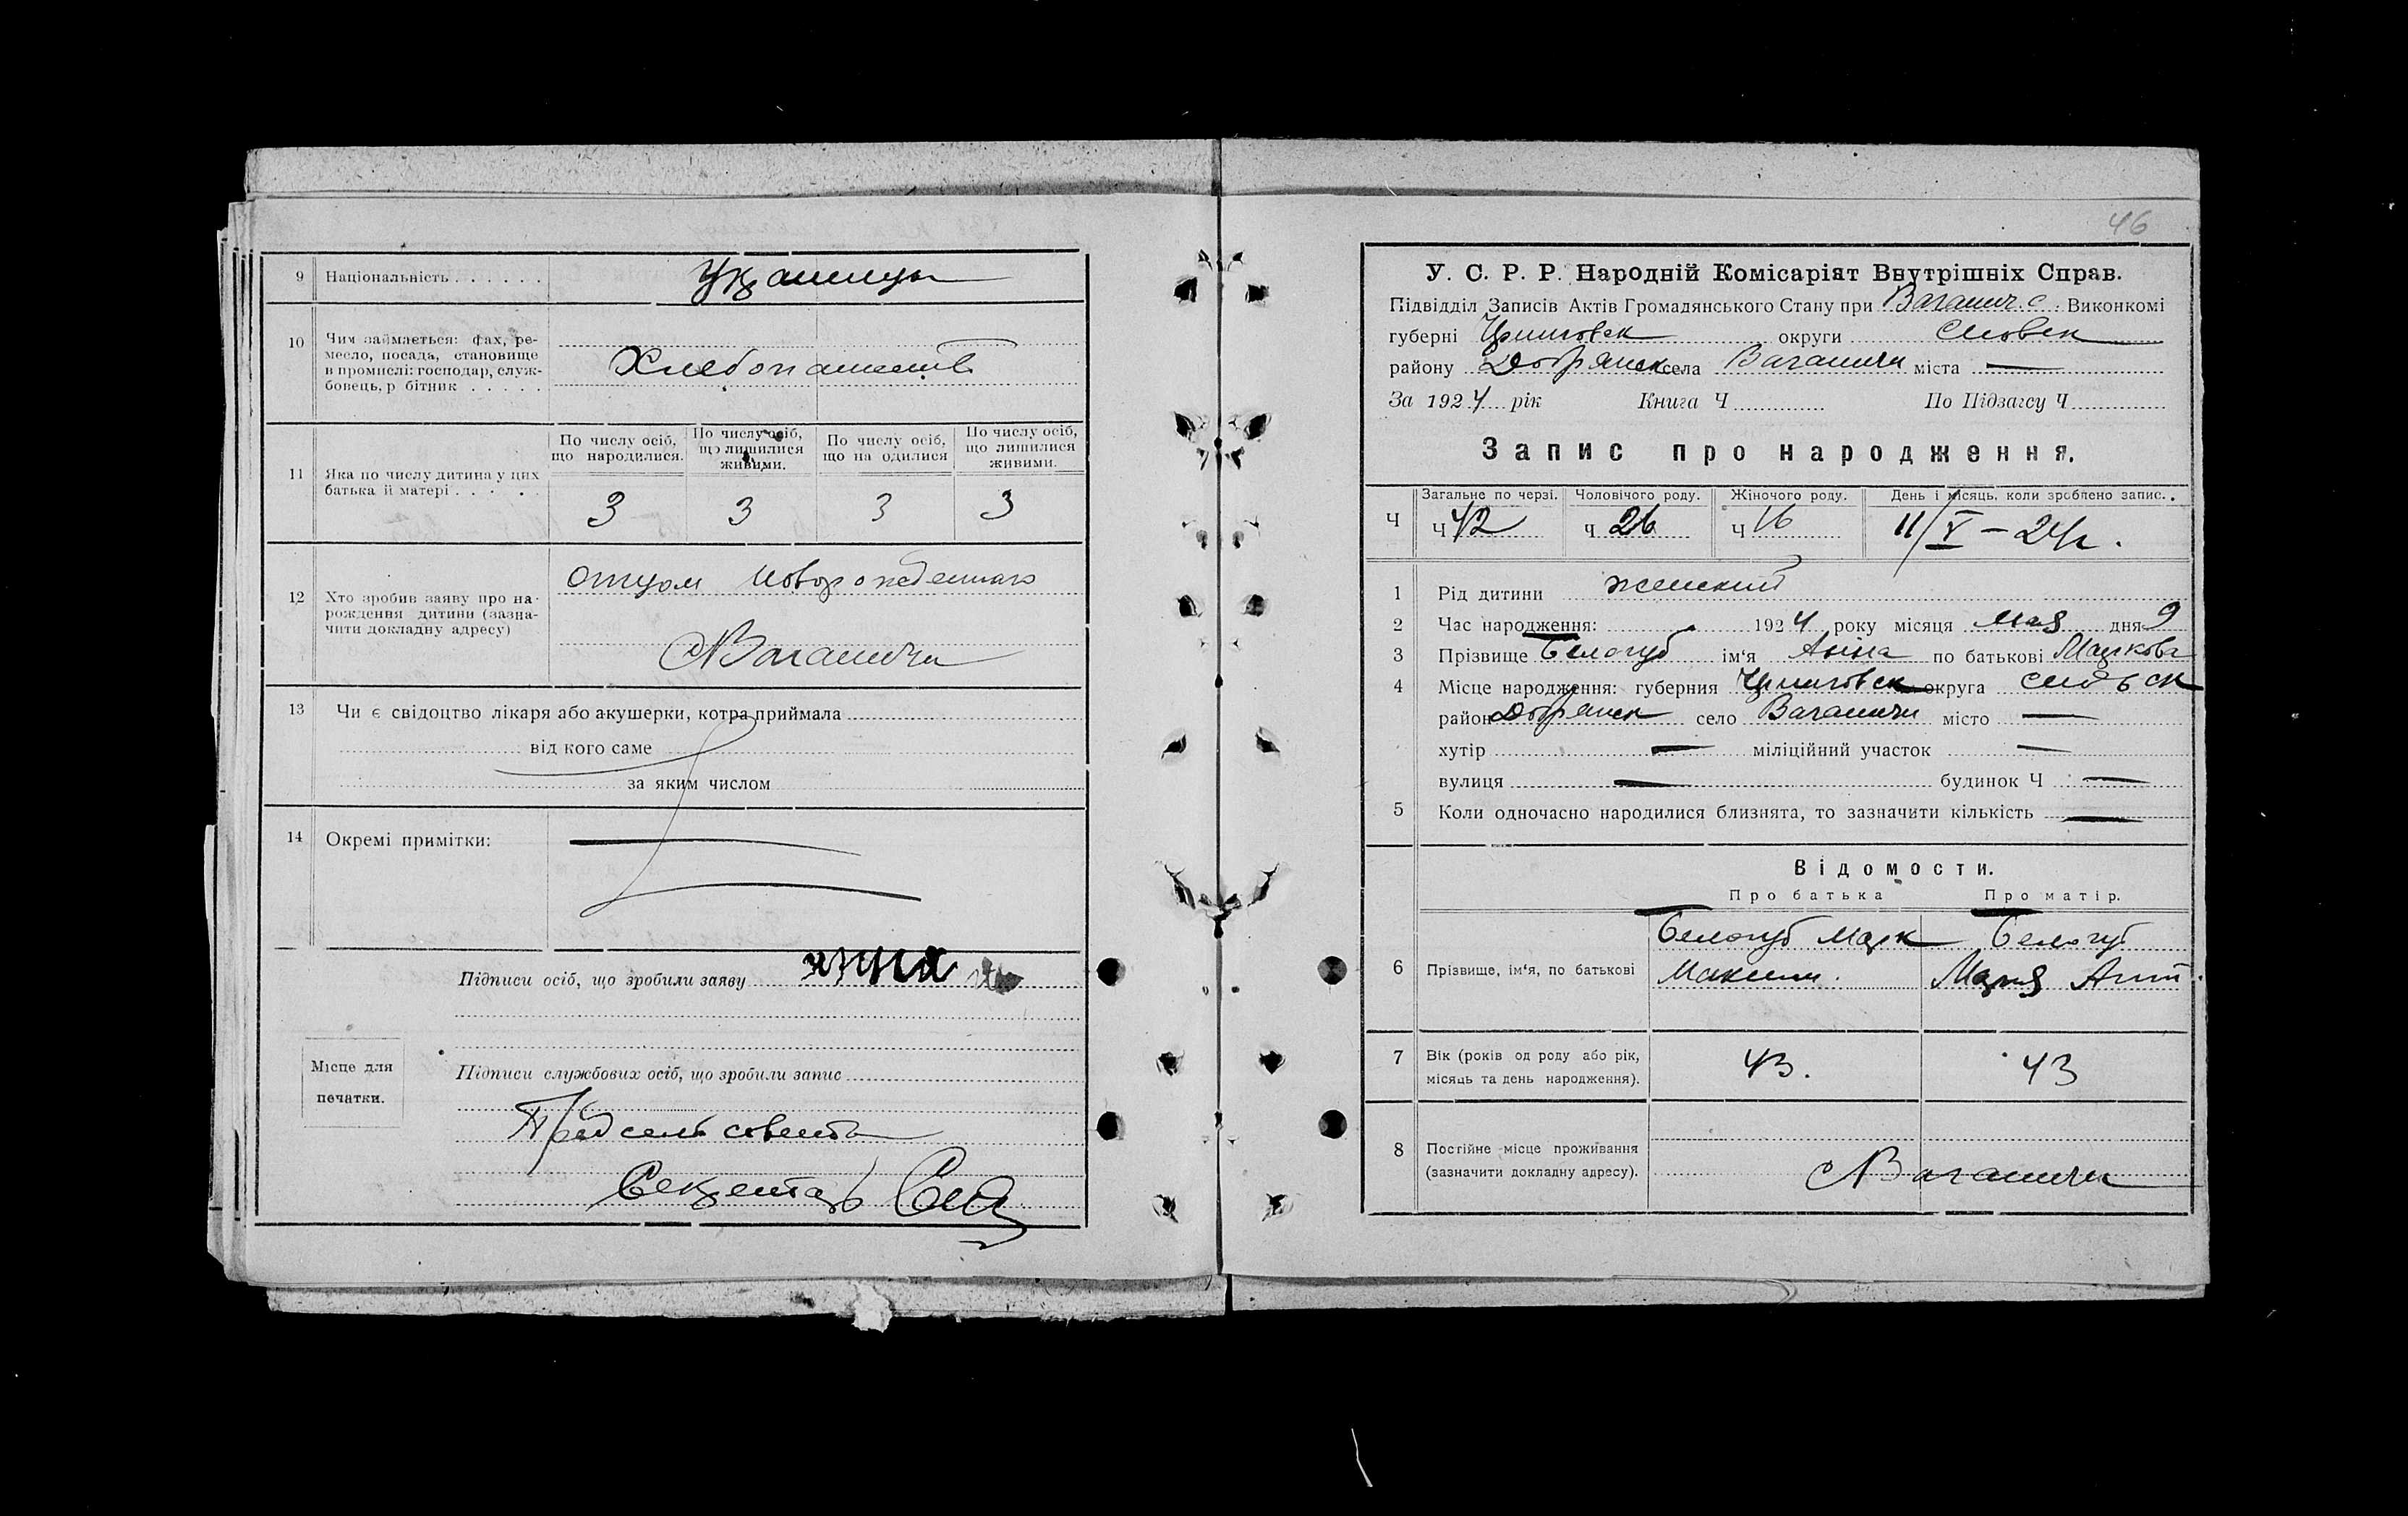 9 Національність . . . . . . Украинцы
10 Чим займається: фах, ре-
месло, посада, становище
в промислі: господар, служ-
бовець, р бітник . . . . .
Хлебопашест
11 Яка по числу дитина у цих
батька й матері . . . . .
По числу осіб,
що народилися.
По числу осіб,
що лишилися
живими.
По числу осіб,
що на одилися
По числу осіб,
що лишилися
живими.
3 3 3 3
12 Хто зробив заяву про на-
рождення дитини (зазна-
чити докладну адресу)
отцом новорожденнаго
с Ваганичи
13 Чи є свідоцтво лікаря або акушерки, котра приймала
від кого саме
за яким числом
14 Окремі примітки:
Підписи осіб, що зробили заяву
Місце для
печатки.
Підписи службових осіб, що зробили запис
Пред сель совета
Секретарь
46
У. С. Р. Р. Народній Комісаріят Внутрішніх Справ.
Підвідділ Записів Актів Громадянського Стану при Ваганич. с. Виконкомі
губерні Черниговск округи Сновск
району Добрянск села Ваганичи міста —
За 1924 рік Книга Ч По Підзагсу Ч
Запис про народження.
Ч
Загальне по черзі. Чоловічого роду. Жіночого роду. День і місяць, коли зроблено запис.
Ч 42 Ч 26 Ч 16 11/V — 24 г.
1 Рід дитини женский
2 Час народження: 1924 року місяця мая дня 9
3 Прізвище Белогуб ім'я Анна по батькові Маркова
4 Місце народження: губерния Черниговск округа Сновск
район Добрянск село Ваганичи місто —
хутір — міліційний участок —
вулиця — будинок Ч —
5 Коли одночасно народилися близнята, то зазначити кількість —
Відомости.
Про батька Про матір.
6 Прізвище, ім'я, по батькові
Белогуб Марк
Максим.
Белогуб
Мария Ант.
7 Вік (років од роду або рік,
місяць та день народження).
43. 43
8 Постійне місце проживання
(зазначити докладну адресу).
с Ваганичи